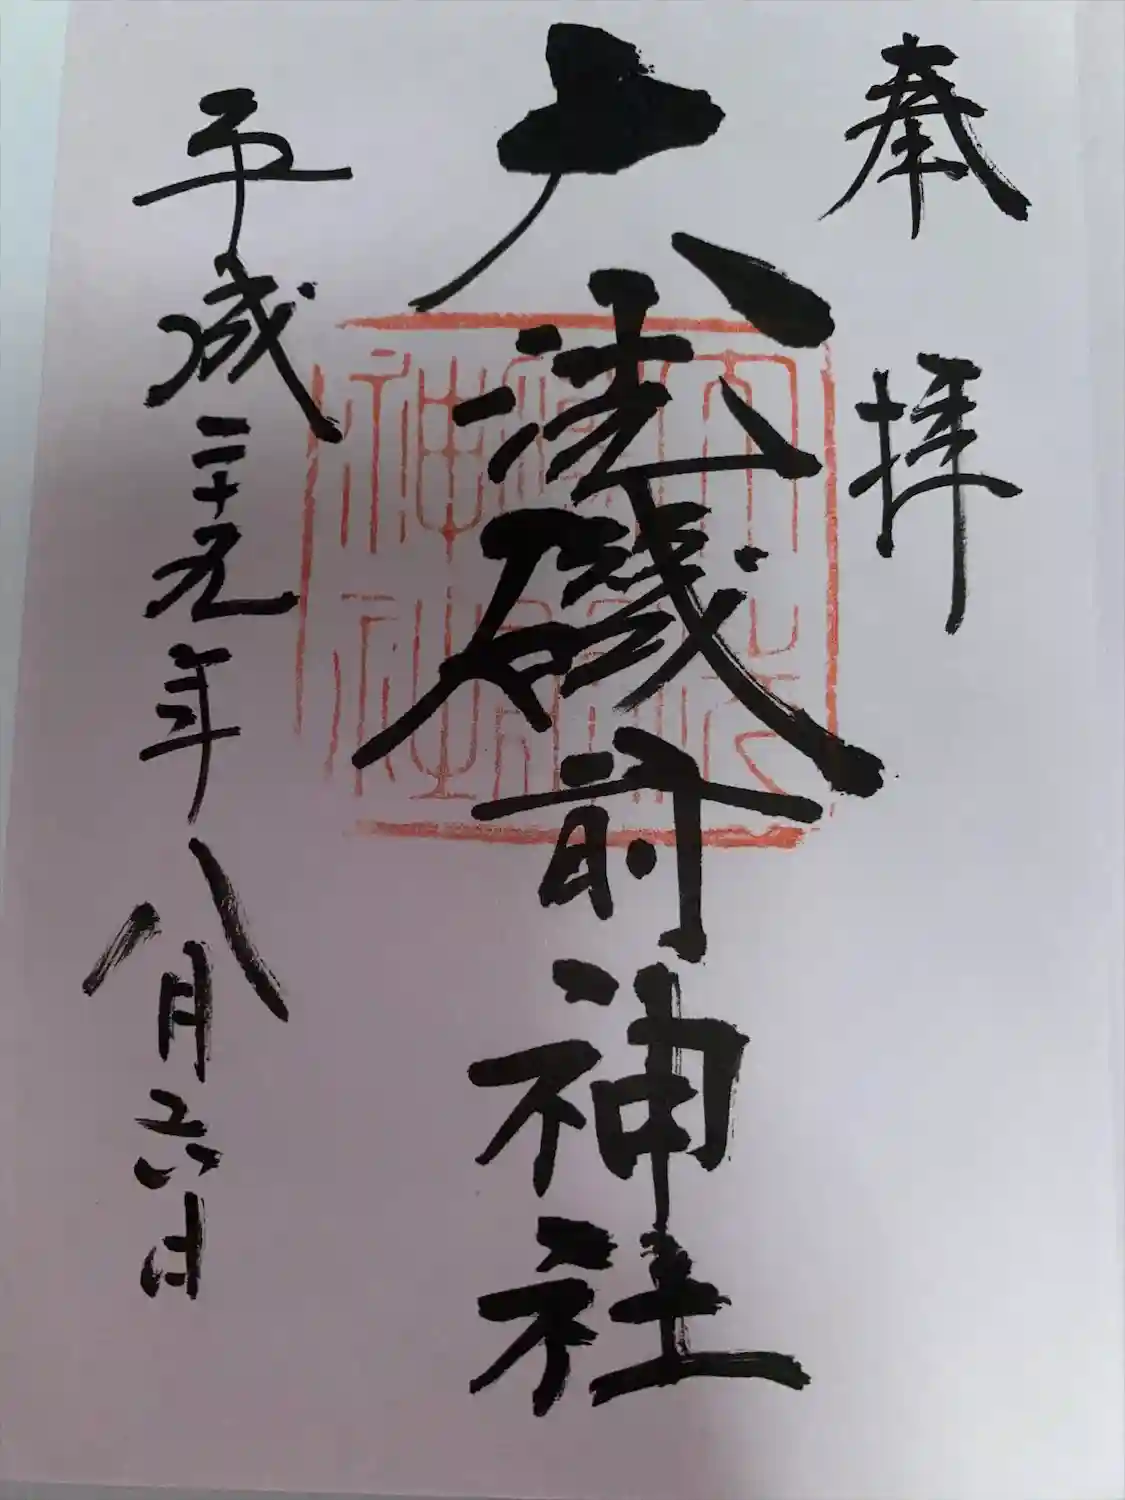 奉拝
大洗磯前神社
平成二十九年八月六日
大洗
磯前
神社